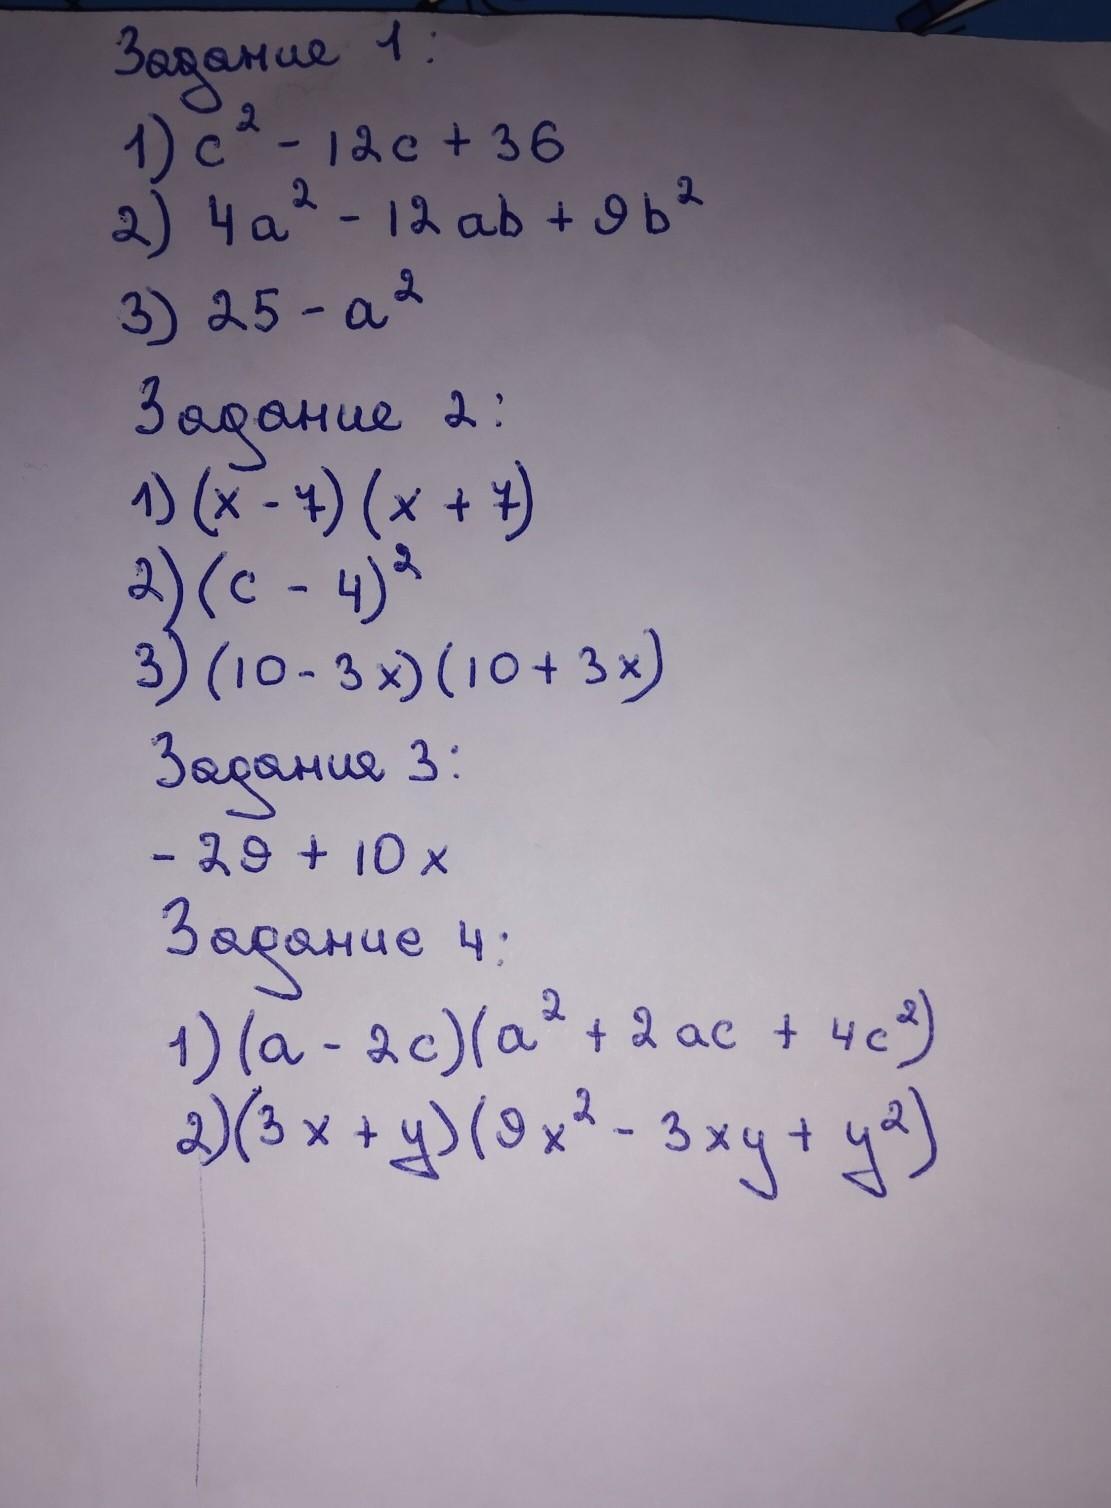 Задание 1:
1) c² - 12c + 36
2) 4a² - 12ab + 9b²
3) 25 - a²
Задание 2:
1) (x - 7) (x + 7)
2) (c - 4)²
3) (10 - 3x) (10 + 3x)
Задание 3:
- 29 + 10x
Задание 4:
1) (a - 2c)(a² + 2ac + 4c²)
2) (3x + y)(9x² - 3xy + y²)